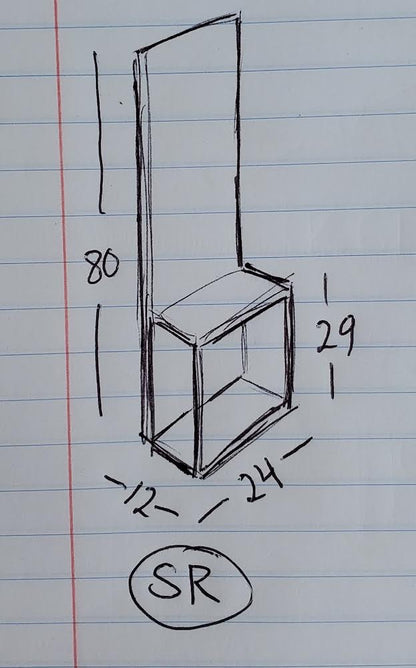 80
29
24
12
SR